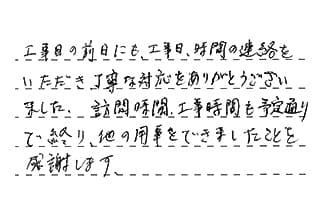 工事日の前日にも、工事日、時間の連絡を
いただき丁寧な対応をありがとうござい
ました。訪問時間、工事時間も予定通り
で終り、他の用事をできましたことを
感謝します。